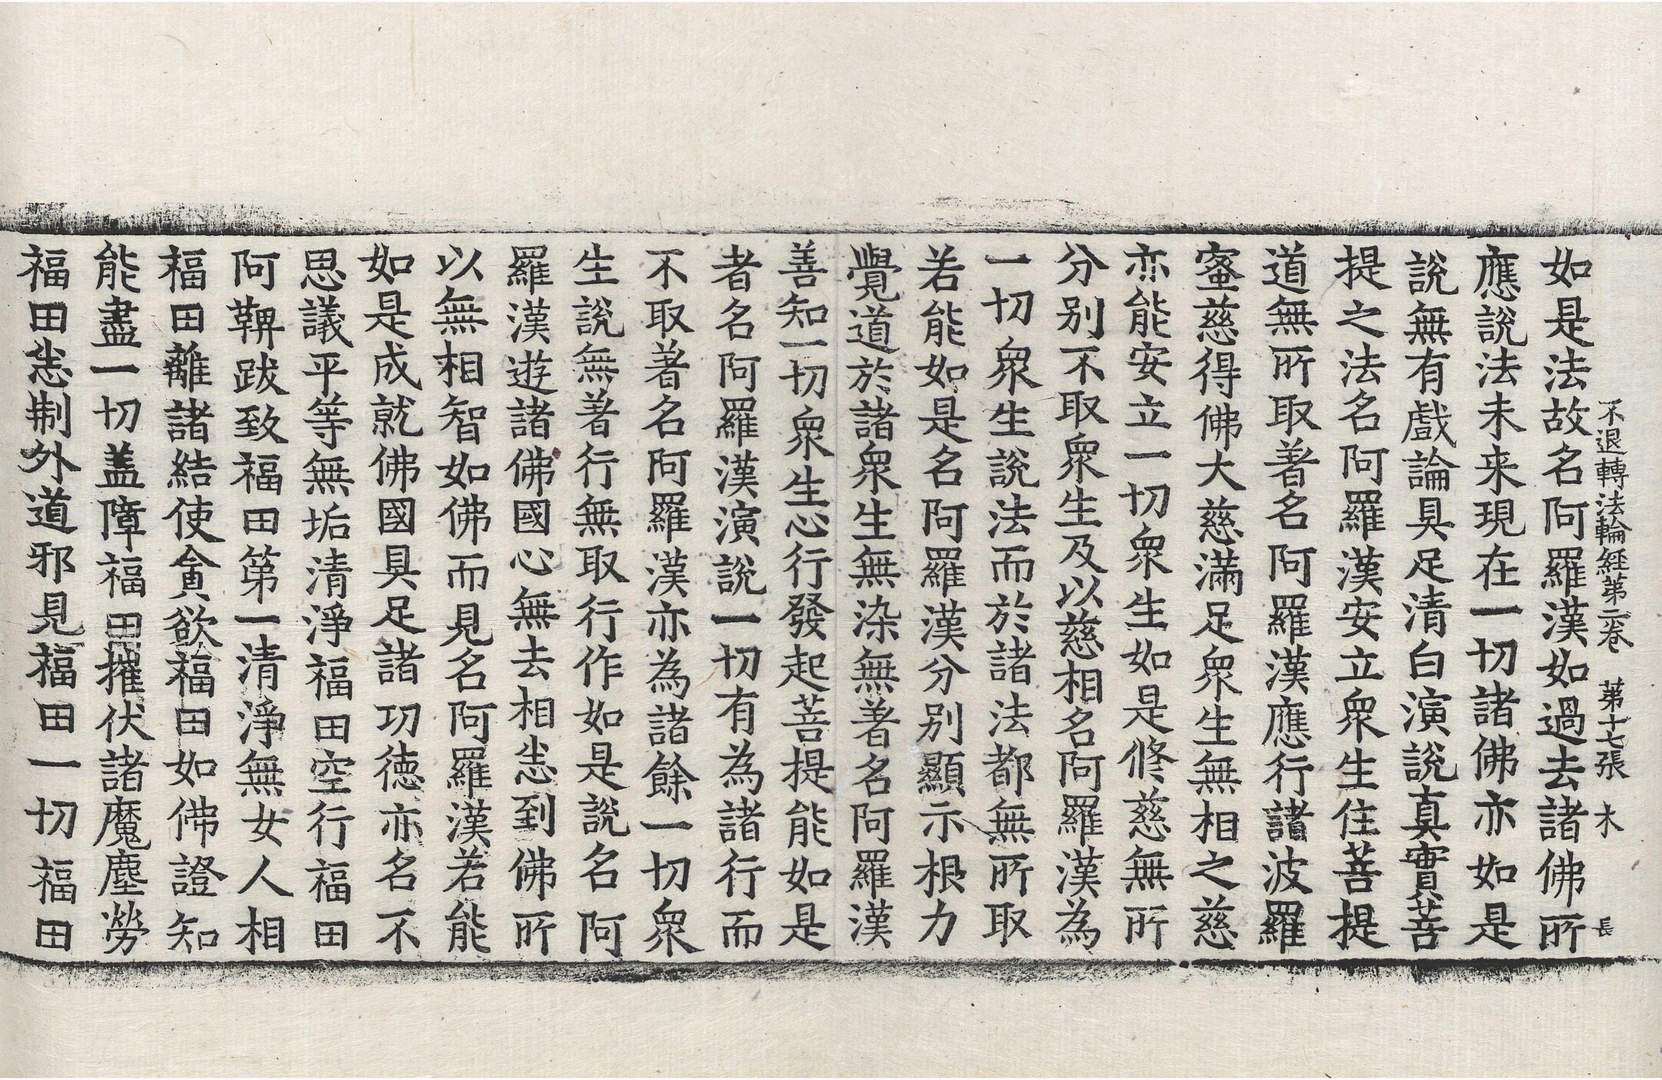 不退轉法輪經第二卷 第十七張 木 長
如是法故名阿羅漢如過去諸佛所
應說法未来現在一切諸佛亦如是
說無有戲論具足清白演說真實菩
提之法名阿羅漢安立眾生住菩提
道無所取著名阿羅漢應行諸波羅
蜜慈得佛大慈滿足眾生無相之慈
亦能安立一切眾生如是修慈無所
分别不取眾生及以慈相名阿羅漢為
一切眾生說法而於諸法都無所取
若能如是名阿羅漢分别顯示根力
覺道於諸眾生無染無著名阿羅漢
善知一切眾生心行發起菩提能如是
者名阿羅漢演說一切有為諸行而
不取著名阿羅漢亦為諸餘一切眾
生說無著行無取行作如是說名阿
羅漢遊諸佛國心無去相恙到佛所
以無相智如佛而見名阿羅漢若能
如是成就佛國具足諸功徳亦名不
思議平等無垢清淨福田空行福田
阿鞞跋致福田第一清淨無女人相
福田離諸結使貪欲福田如佛證知
能盡一切盖障福田摧伏諸魔塵勞
福田恙制外道邪見福田一切福田